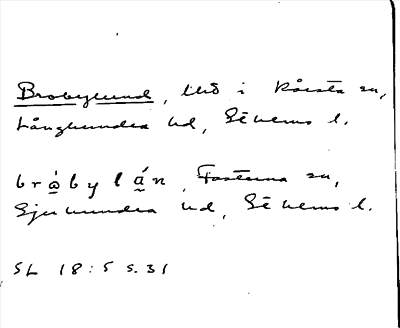 Brobylund, lhö i Råersta sn,
Långhundra hd, Sthlms l.
bròbylán, Fasterna sn,
Sjuhundra hd, Sthlms l.
SL 18:5 s.31